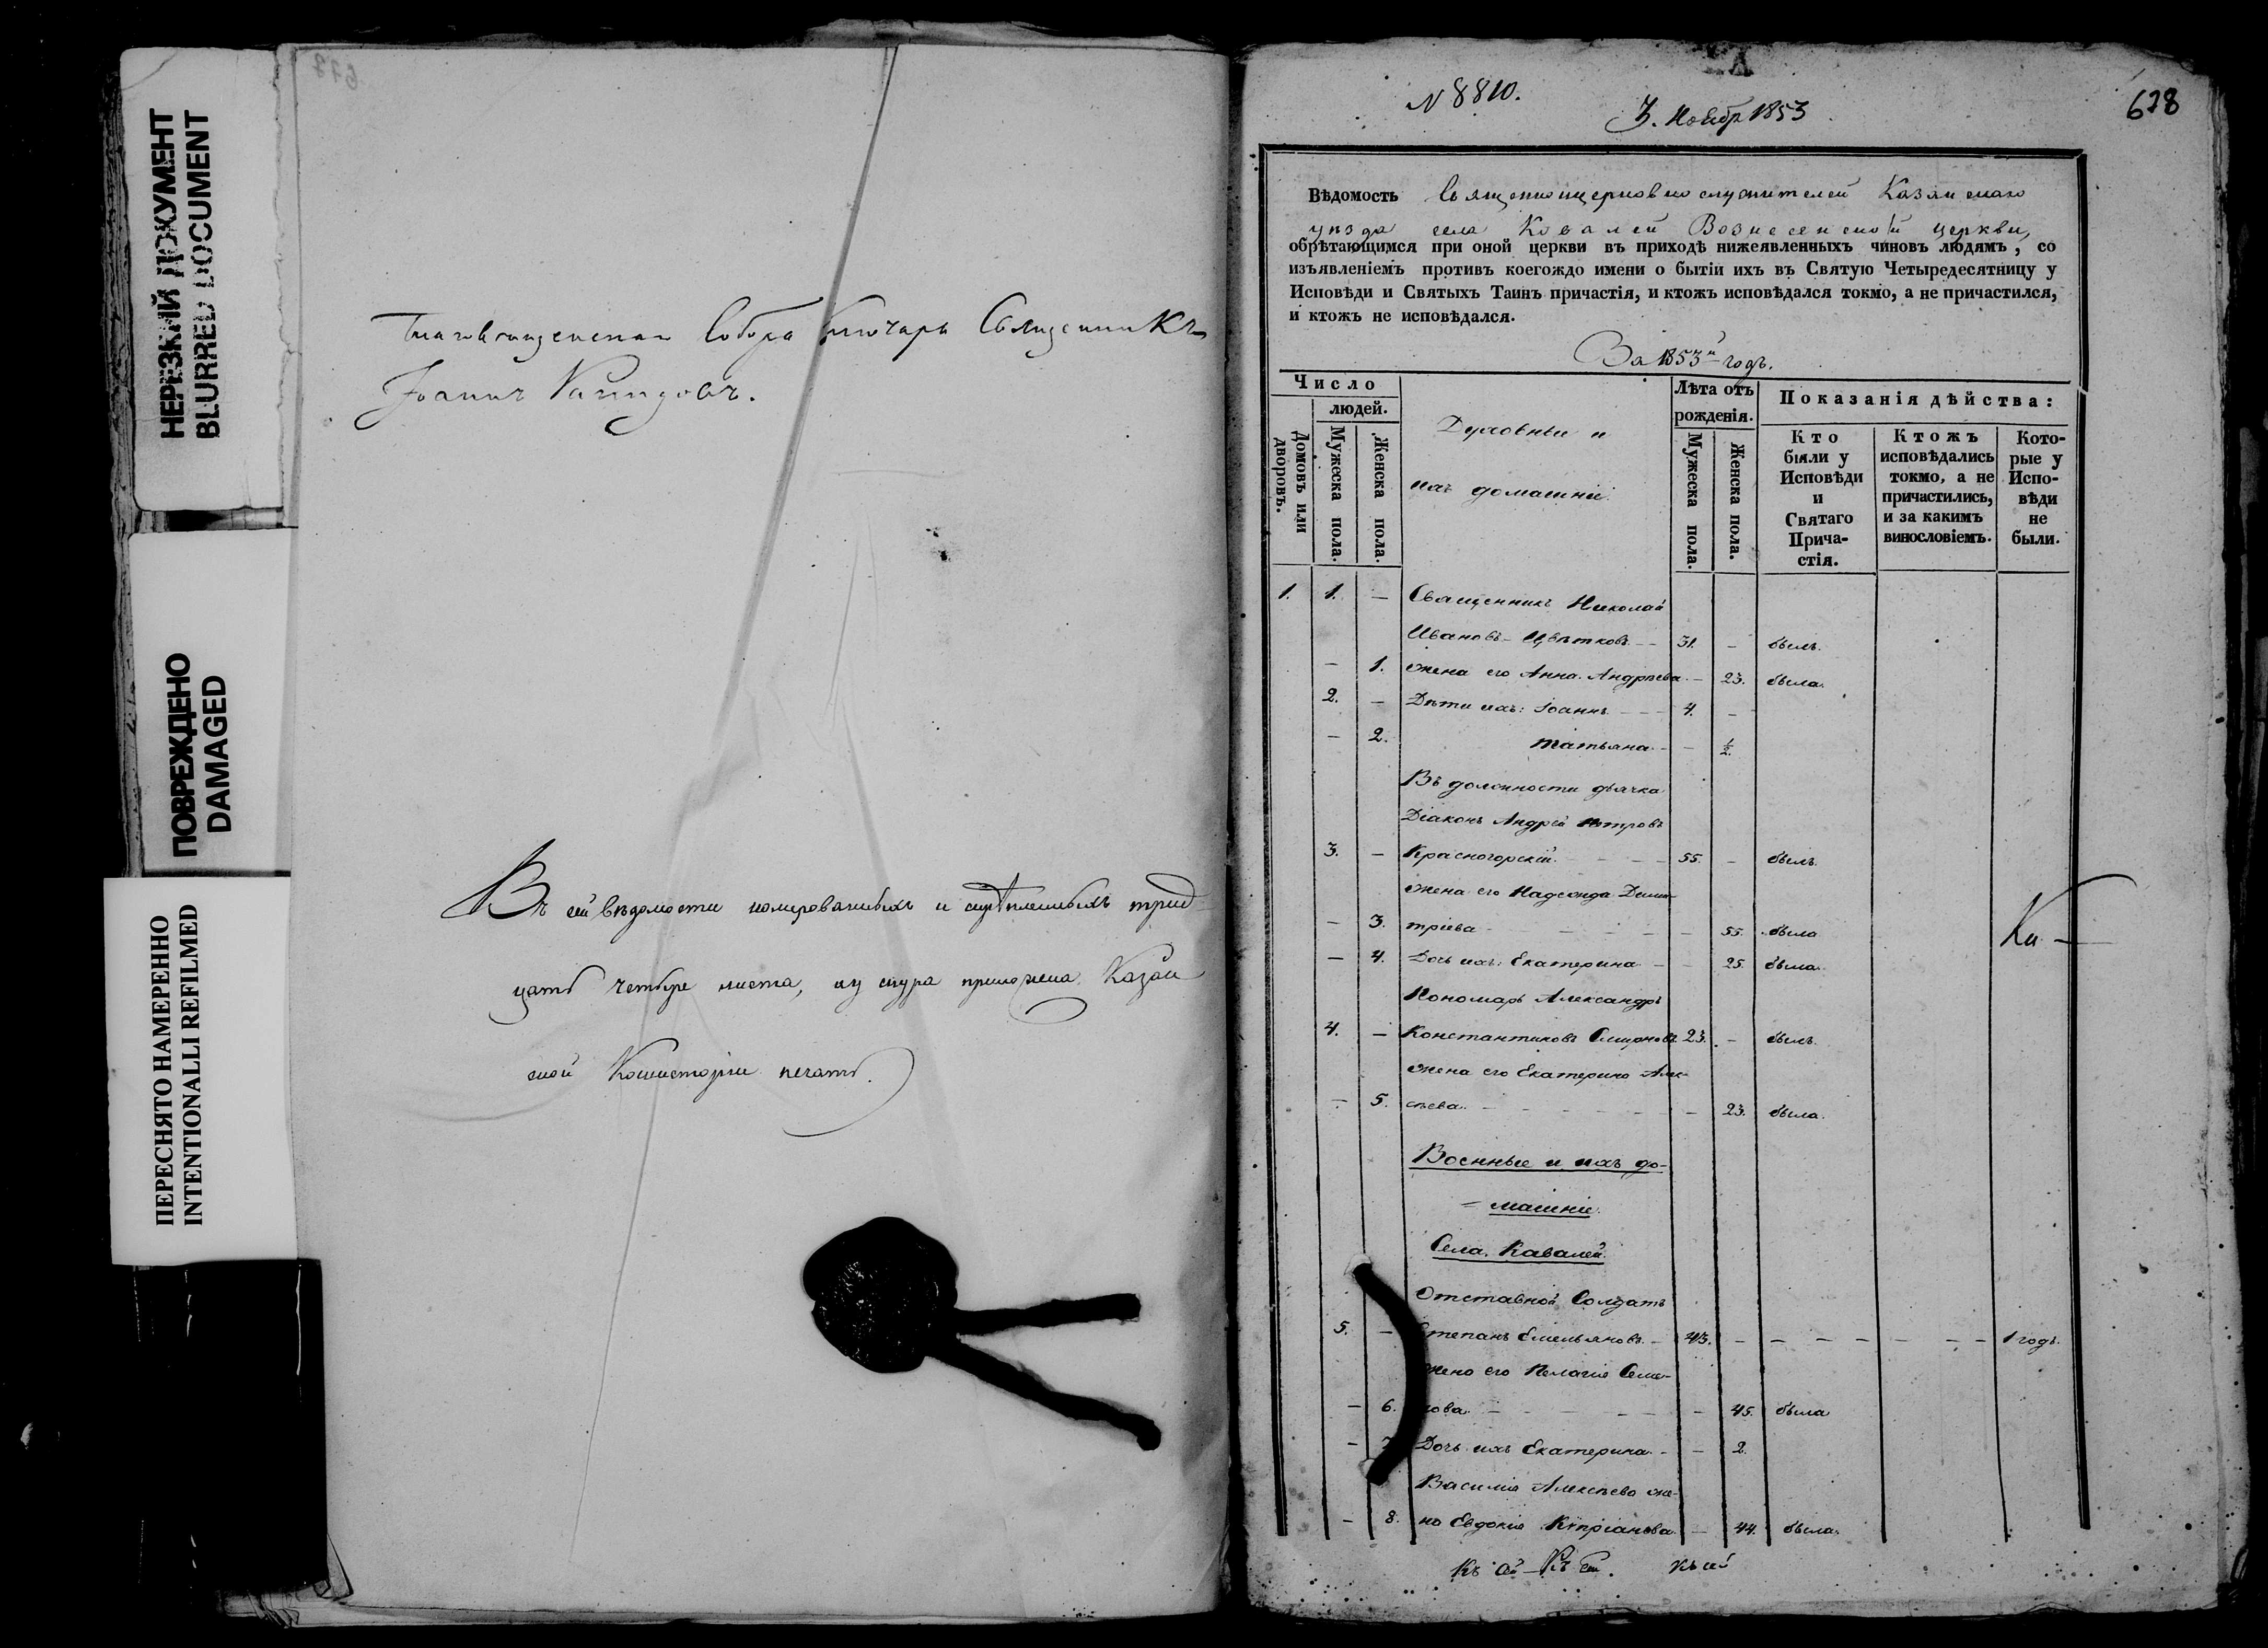 НЕРЕЗКИЙ ДОКУМЕНТ
BLURRED DOCUMENT
ПОВРЕЖДЕНО
DAMAGED
ПЕРЕСНЯТО НАМЕРЕННО
INTENTIONALLI REFILMED
Благовѣщенскаго Собора Ключарь Священникъ
Іоаннъ
Въ сей вѣдомости номерованныхъ и скрѣпленныхъ трид-
цать четыре листа, къ шнура приложена Казан
ской Консисторіи печать.
N 8810.
3. Ноябр 1853
678
Вѣдомость Священноцерковнослужителей Казанскаго
уѣзда села Ковалей Вознесенской церкви,
обрѣтающимся при оной церкви въ приходѣ нижеявленныхъ чиновъ людямъ, со
изъявленіемъ противъ коегождо имени о бытіи ихъ въ Святую Четыредесятницу у
Исповѣди и Святыхъ Таинъ причастія, и ктожъ исповѣдался токмо, а не причастился,
и ктожъ не исповѣдался.
За 1853й годъ.
Число
людей.
Домовъ или дворовъ.
Мужеска пола.
Женска пола.
Духовные и
ихъ домашніе
Лѣта отъ
рожденія.
Мужеска пола.
Женска пола.
Показанія дѣйства:
Кто
были у
Исповѣди
и
Святаго
Прича-
стія.
Ктожъ
исповѣдались
токмо, а не
причастились,
и за какимъ
винословіемъ.
Кото-
рые у
Испо-
вѣди
не
были.
1. 1. — Священникъ Николай
Ивановъ Цвѣтковъ — 31. — былъ.
— 1. жена его Анна Андрѣева — 23. была.
2. — Дѣти ихъ: Іоаннъ — 4. —
— 2. Татьяна — — ½.
Въ должности дьячка
Діаконъ Андрей Петровъ
3. — Красногорскій — 55. — былъ.
жена его Надежда Дими-
— 3. тріева — — 55. была
— 4. Дочь ихъ: Екатерина — — 25. была.
Пономарь Александръ
4. — Константиновъ Смирновъ 23. — былъ.
жена его Екатерина Алек-
— 5. сѣева — — 23. была.
Военные и ихъ до-
— машніе.
Села Кавалей.
Отставной Солдатъ
5. — Степанъ Емельяновъ — 43. — — — 1 годъ.
жена его Пелагія Семе-
— 6. нова — — 45. была
— 7. Дочь ихъ Екатерина — — 2.
Василія Алексѣева же-
— 8. на Евдокія Кѵпріанова — 44. была.
Къ сей